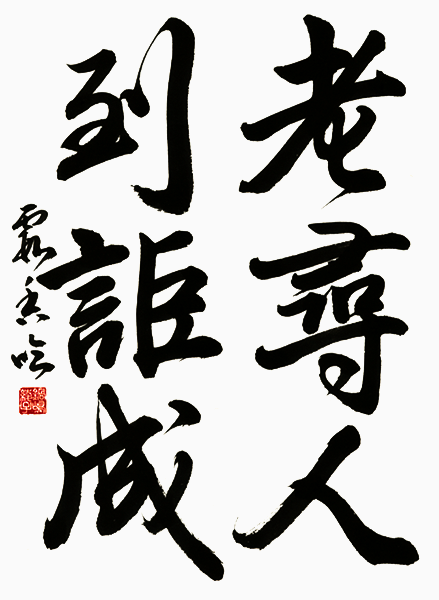 老尋人
到詎成